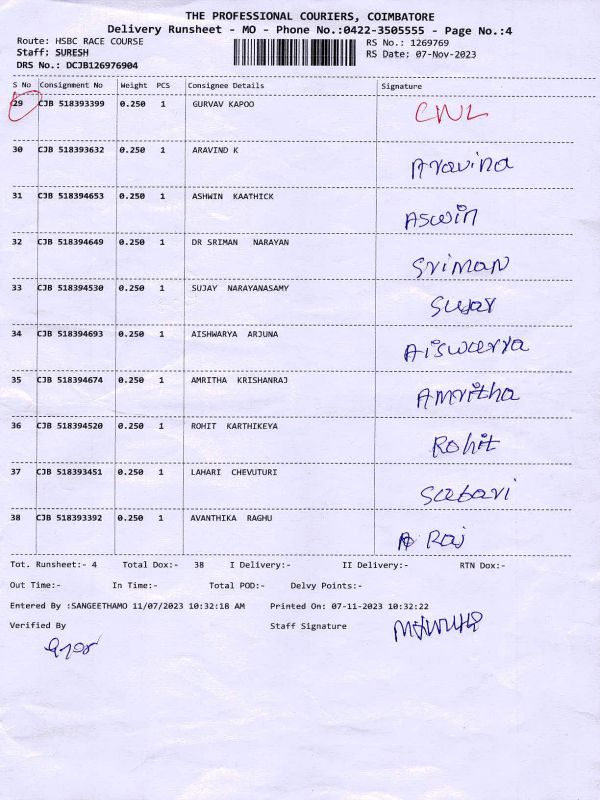 THE PROFESSIONAL COURIERS, COIMBATORE
Delivery Runsheet - MO - Phone No.:0422-3505555 - Page No.:4
Route: HSBC RACE COURSE RS No.: 1269769
Staff: SURESH RS Date: 07-Nov-2023
DRS No.: DCJB126976904
S No Consignment No Weight PCS Consignee Details Signature
29 CJB 518393399 0.250 1 GURVAV KAPOO CNL
30 CJB 518393632 0.250 1 ARAVIND K Aravind
31 CJB 518394653 0.250 1 ASHWIN KAATHICK Aswin
32 CJB 518394649 0.250 1 DR SRIMAN NARAYAN Sriman
33 CJB 518394530 0.250 1 SUJAY NARAYANASAMY Sujay
34 CJB 518394693 0.250 1 AISHWARYA ARJUNA Aiswarya
35 CJB 518394674 0.250 1 AMRITHA KRISHANRAJ Amritha
36 CJB 518394520 0.250 1 ROHIT KARTHIKEYA Rohit
37 CJB 518393451 0.250 1 LAHARI CHEVUTURI Sabari
38 CJB 518393392 0.250 1 AVANTHIKA RAGHU A Raj
Tot. Runsheet:- 4 Total Dox:- 38 I Delivery:- II Delivery:- RTN Dox:-
Out Time:- In Time:- Total POD:- Delvy Points:-
Entered By :SANGEETHAMO 11/07/2023 10:32:18 AM Printed On: 07-11-2023 10:32:22
Verified By Staff Signature